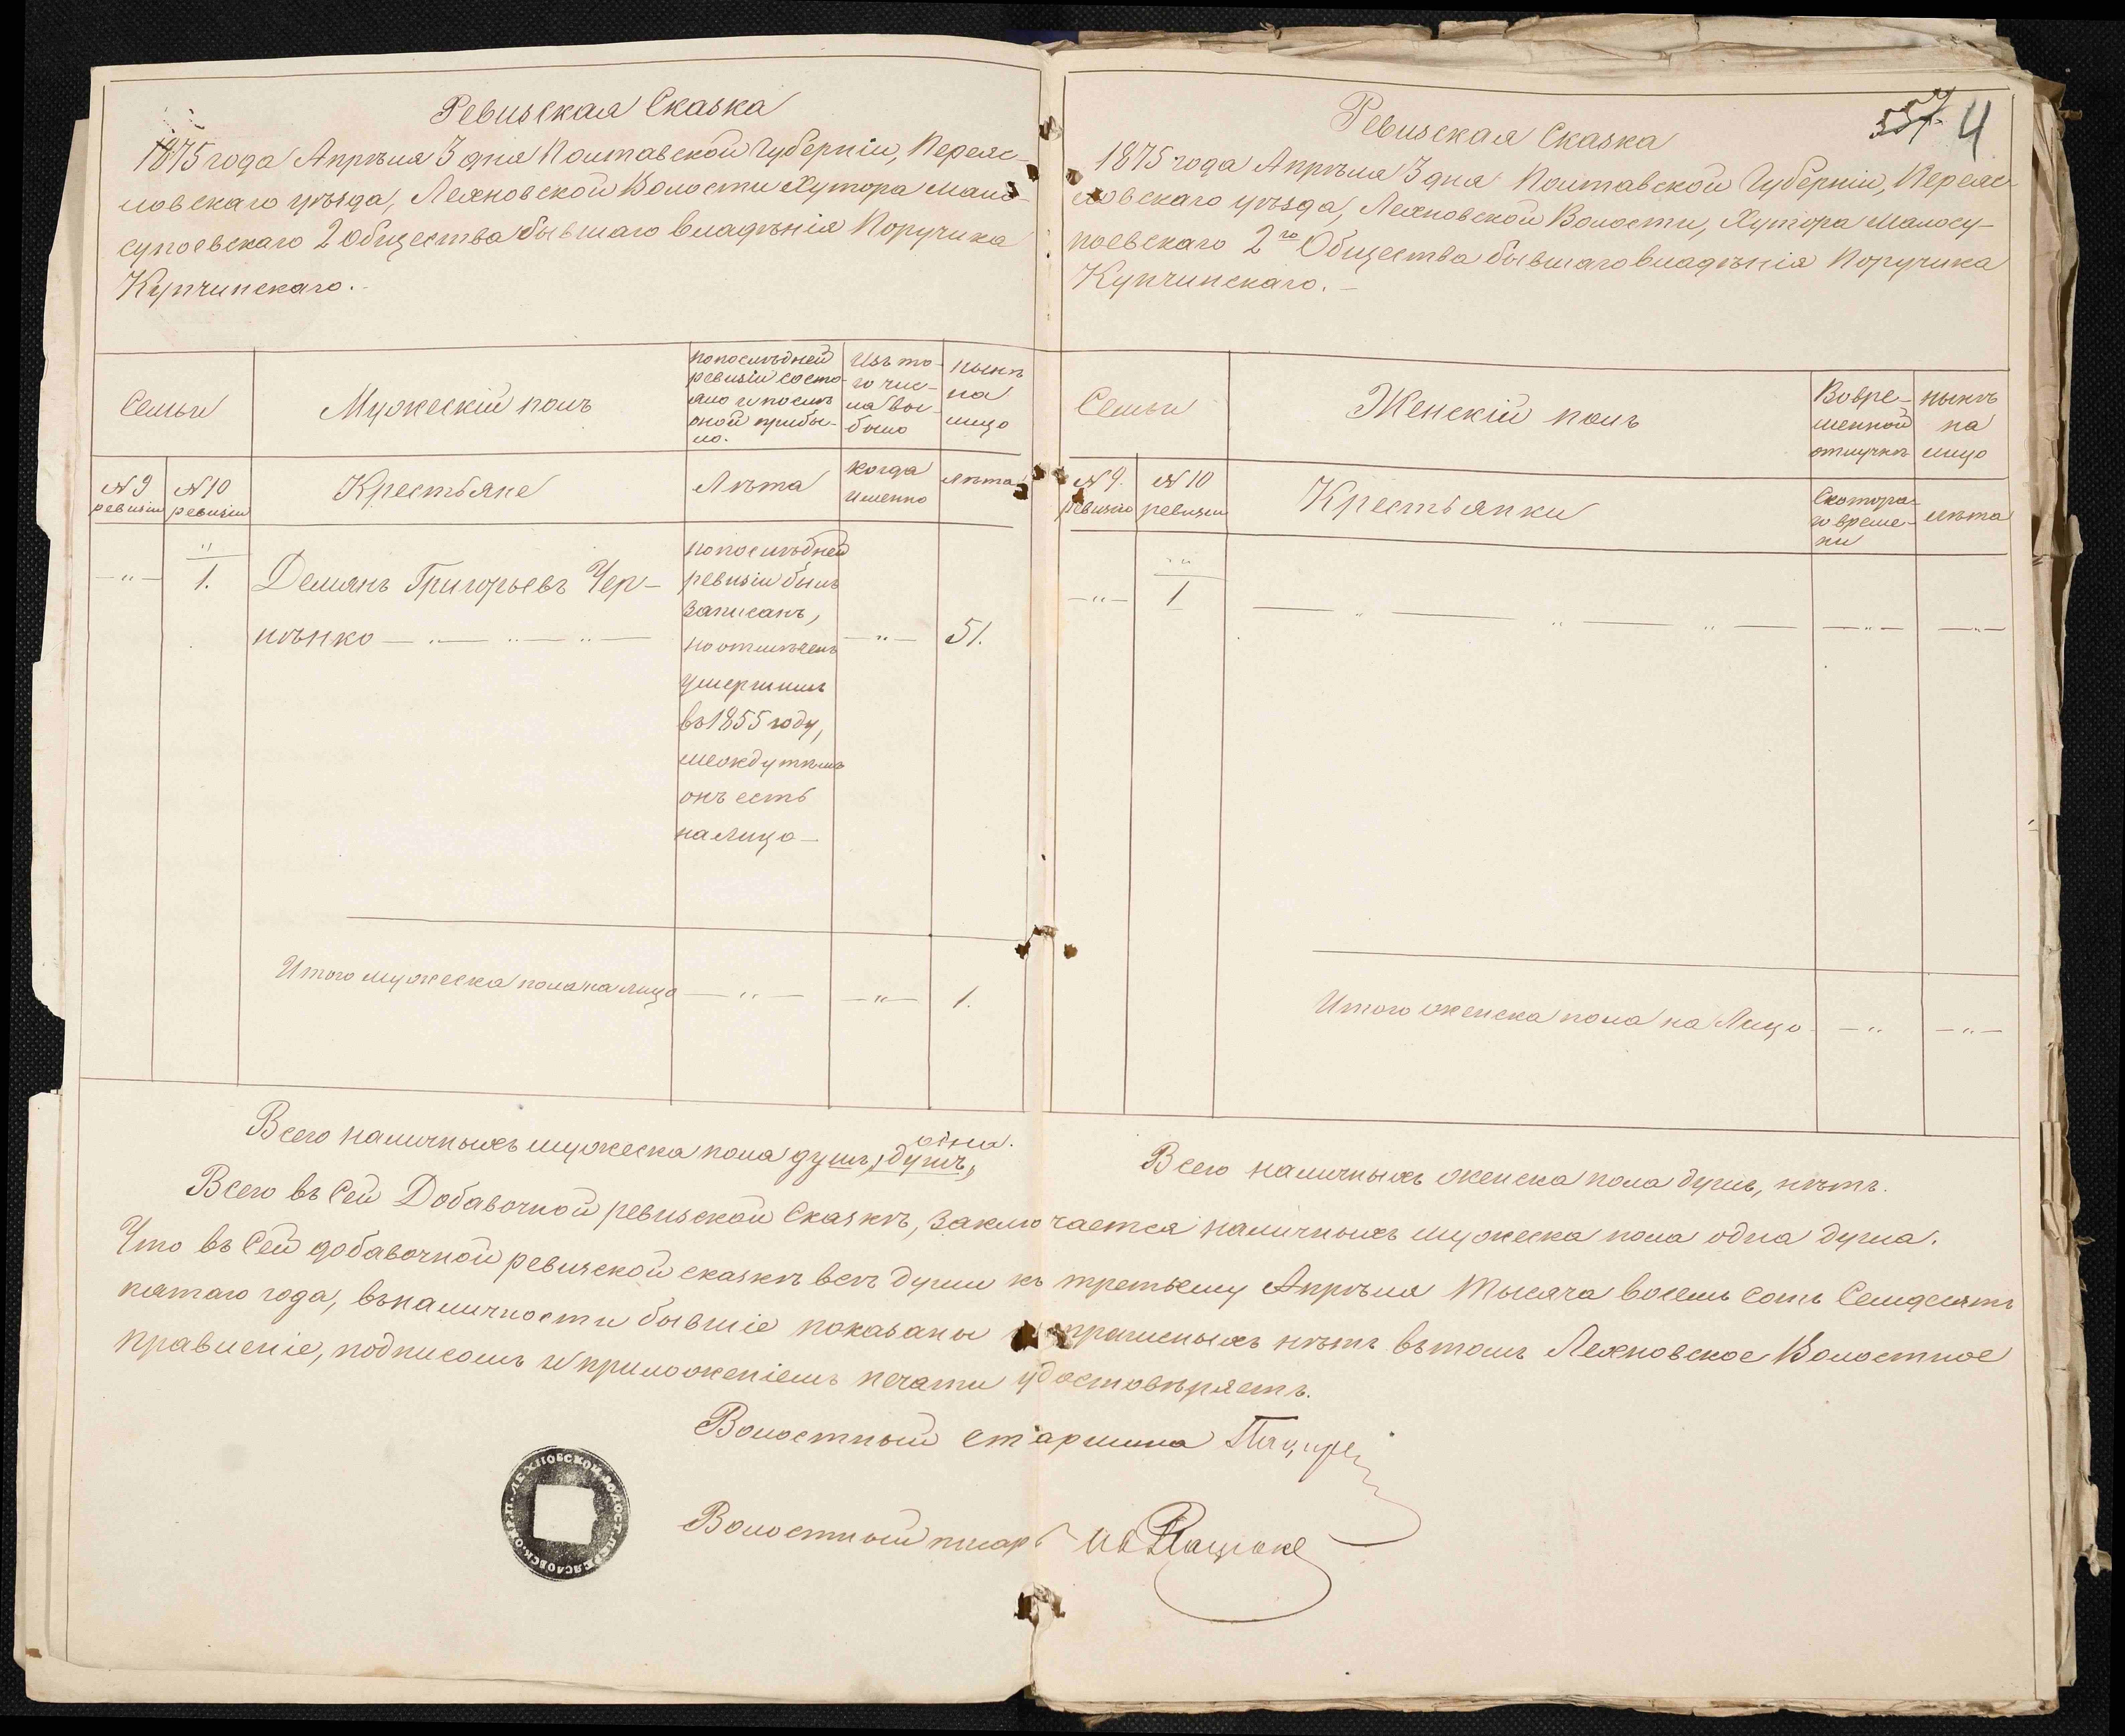 Ревизская Сказка
1875 года Апрѣля 3 дня Полтавской Губерніи, Переяс-
ловскаго уѣзда, Лехновской Волости Хутора Мало-
супоевскаго 2 Общества бывшаго владѣнія Поручика
Купчинскаго.
Семьи
Мужескій полъ
По послѣдней
ревизіи состо-
яло и послѣ
оной прибы-
ло.
Изъ то-
го чис-
ла вы-
было
Нынѣ
на
лицо
№ 9
ревизіи
№ 10
ревизіи
Крестьяне
Лѣта
Когда
именно
Лѣта
— „ —
„
1.
Демянъ Григорьевъ Чер-
нѣнко — „ — „ — „ —
по послѣдней
ревизіи былъ
записанъ,
но отмѣченъ
умершимъ
въ 1855 году,
между тѣмъ
онъ есть
на лицо —
— „ —
51.
Итого мужеска пола на лицо — „ — — „ — 1.
Ревизская Сказка
557 4
1875 года Апрѣля 3 дня Полтавской Губерніи, Переяс-
ловскаго уѣзда, Лехновской Волости, Хутора Малосу-
поевскаго 2го Общества бывшаго владѣнія Поручика
Купчинскаго. —
Семьи
Женскій полъ
Во вре-
менной
отлучкѣ
Нынѣ
на
лицо
№ 9.
ревизіи
№ 10
ревизіи
Крестьянки
Съ котора-
го време-
ни
лѣта
— „ —
„
1
— „ — „ — „ — — „ — — „ —
Итого женска пола на Лицо — „ — „ —
Всего наличныхъ мужеска пола душъ, душъ, одна.
Всего наличныхъ женска пола душъ, нѣтъ.
Всего въ Сей Добавочной ревизской Сказкѣ, заключается наличныхъ мужеска пола одна душа.
Что въ Сей добавочной ревизской сказкѣ всѣ души къ третьему Апрѣля Тысяча восемь сотъ Семдесятъ
пятаго года, въ наличности бывшіе показаны и нѣтъ въ томъ Лехновское Волостное
Правленіе, подписомъ и приложеніемъ печати удостовѣряетъ.
Волостный старшина
Волостный писарь
ЛЕХНОВСКОЙ ВОЛОСТ. ПЕРЕЯСЛОВСК.